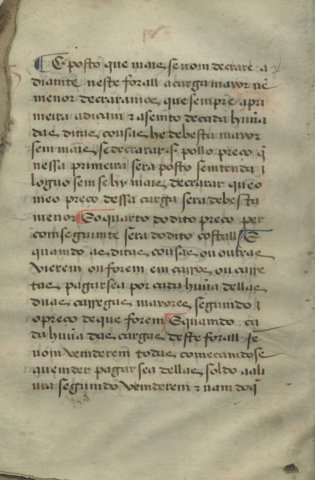 E posto que mais se nom decrare a
diante neste forall a carga mayor ne
menor decraramos que sempre a pri
meira adicam e asento da ca da huũa
das ditas cousas he de besta mayor
sem mais se decrarar s. pollo preço q̃
nessa primeira sera posto s'emtenda
loguo sem se hy mais decrarar que o
meo preço dessa carga sera de besta
menor E o quarto do dito preço per
comseguimte sera do dito costall E
quamdo as ditas cousas ou outras
vierem ou forem em carros ou carre
tas pagarsea por cada huũa dellas
duas carregas mayores segumdo
o preço de que forem E quamdo ca
da huũa das cargas deste forall se
nom vemderem todas começandose
a vemder pagarsea dellas soldo a li
ura segumdo vemderem e nam do q̃